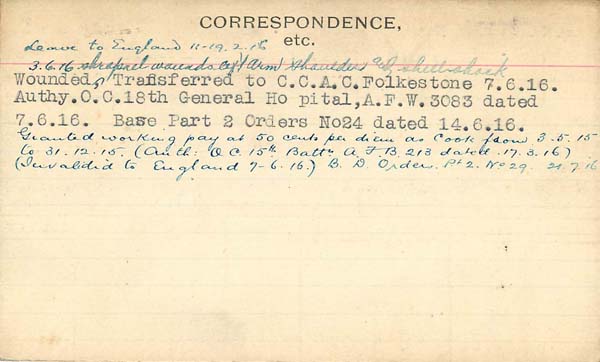 CORRESPONDENCE,
etc.
Leave to England 11-19.2.16
3.6.16 shrapnel wounds left Arm & shoulder & shell-shock
Wounded, Transferred to C.C.A.C.Folkestone 7.6.16.
Authy.O.C.18th General Ho pital,A.F.W.3083 dated
7.6.16. Base Part 2 Orders No24 dated 14.6.16.
Granted working pay at 50 cents per diem as Cook from 3.5.15
to 31.12.15. (Auth. O.C. 15th Battn A.F.B. 213 dated 17.3.16)
(Invalided to England 7-6.16.) B. D. Orders. Pt 2. No 29. 21.7.16